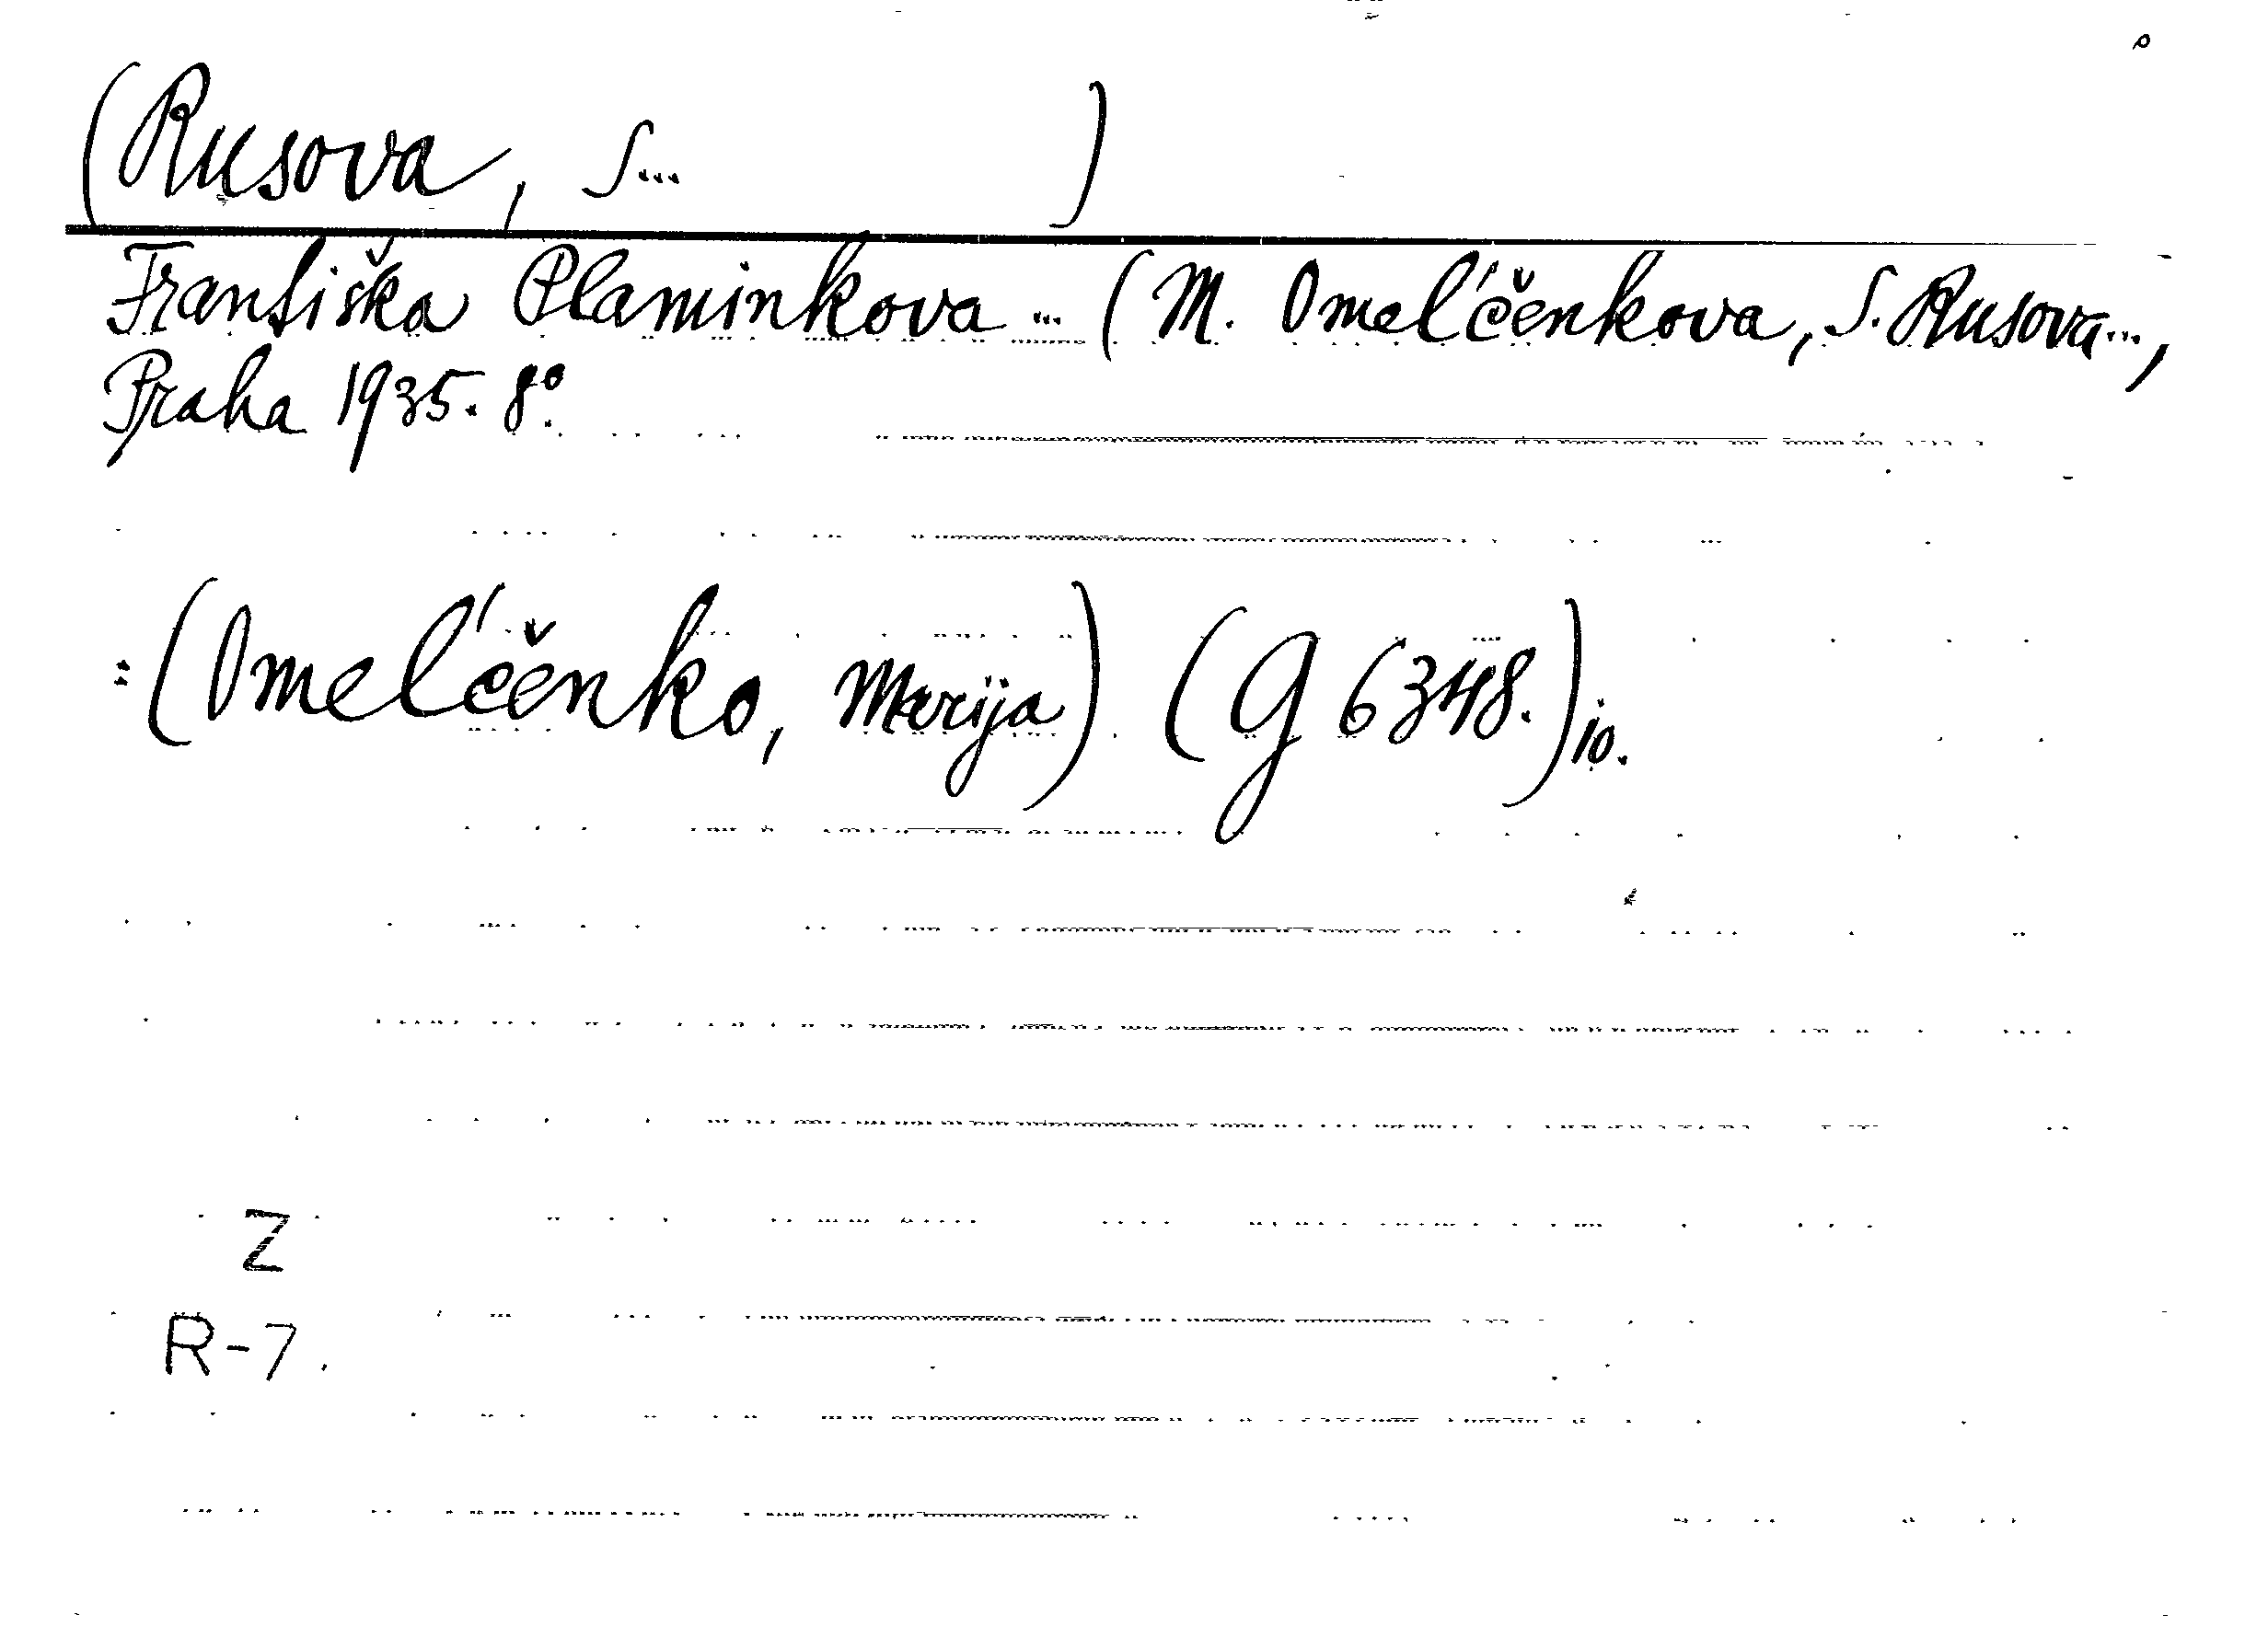 (Rusova, S...)
Františka Plaminkova ... (M. Omel'čenkova, S. Rusova...,
Praha 1935. 8°.
= (Omel'čenko, Marija). (G 6348.)io.
Z
R-7.